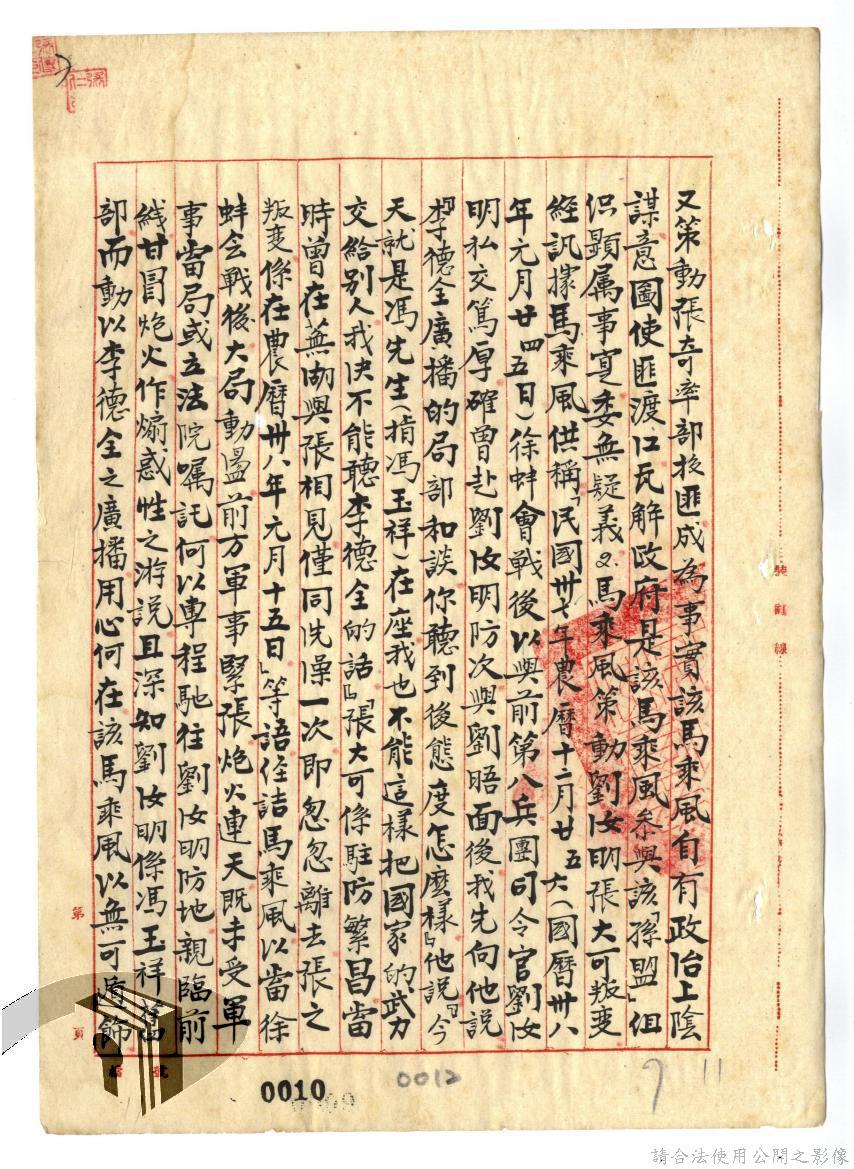 又策動張奇率部投匪成為事實該馬乘風自有政治上陰
謀意圖使匪渡江瓦解政府是該馬乘風參與該「孫盟」組
織顯属事寔委無疑義2.馬乘風策動劉汝明張大可叛变
經訊據馬乘風供稱「民國卅七年農曆十二月廿五六(國曆卅八
年元月廿四五日)徐蚌會戰後以與前第八兵團司令官劉汝
明私交篤厚確曾赴劉汝明防次與劉晤面後我先向他說
『李德全廣播的局部和談你聽到後態度怎麼樣』他說『今
天就是馮先生(指馮玉祥)在座我也不能這樣把國家的武力
交給別人我決不能聽李德全的話』「張大可係駐防繁昌當
時曾在蕪湖與張相見僅同洗澡一次即忽忽離去張之
叛变係在農曆卅八年元月十五日」等語經詰馬乘風以當徐
蚌会戰後大局動盪前方軍事緊張炮火連天既未受軍
事當局或立法院囑託何以專程馳往劉汝明防地親臨前
綫甘冒炮火作煽惑性之游說且深知劉汝明係馮玉祥舊
部而動以李德全之廣播用心何在該馬乘風以無可遁飾
裝訂線
第 頁
檔號
0010
0012
7
11
請合法使用公開之影像